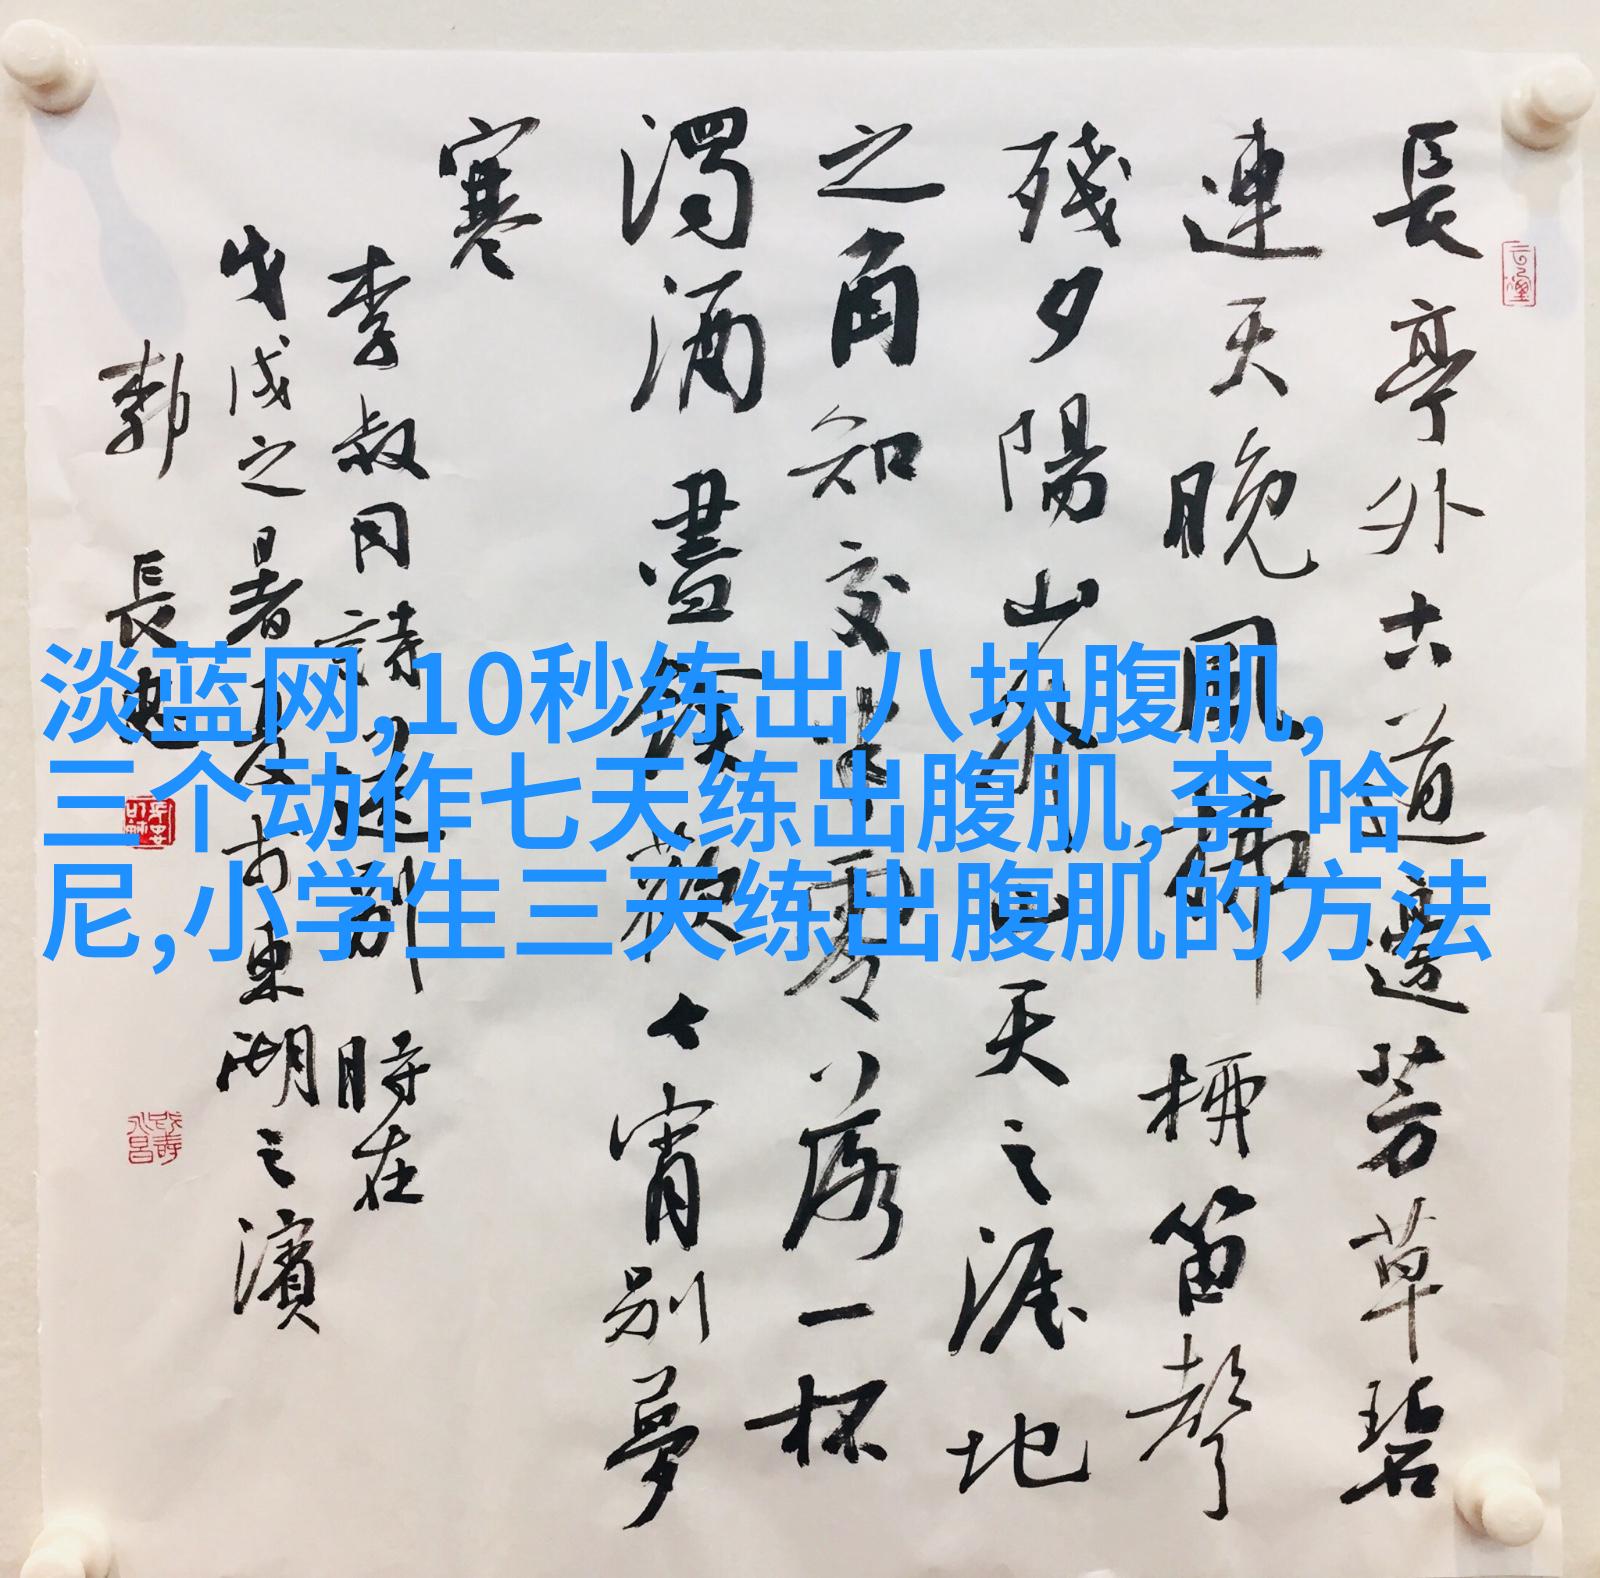 長亭外古道邊芳草碧
連天晚風拂柳笛聲
殘夕陽山外山天之涯地
之角知交半零落一杯
濁酒盡餘歡今宵別夢
寒
李叔同詩送別 時在
戊戌之暑夏於東湖之濱
郭長
淡蓝网,10秒练出八块腹肌,
三个动作七天练出腹肌,李 哈
尼,小学生三天练出腹肌的方法